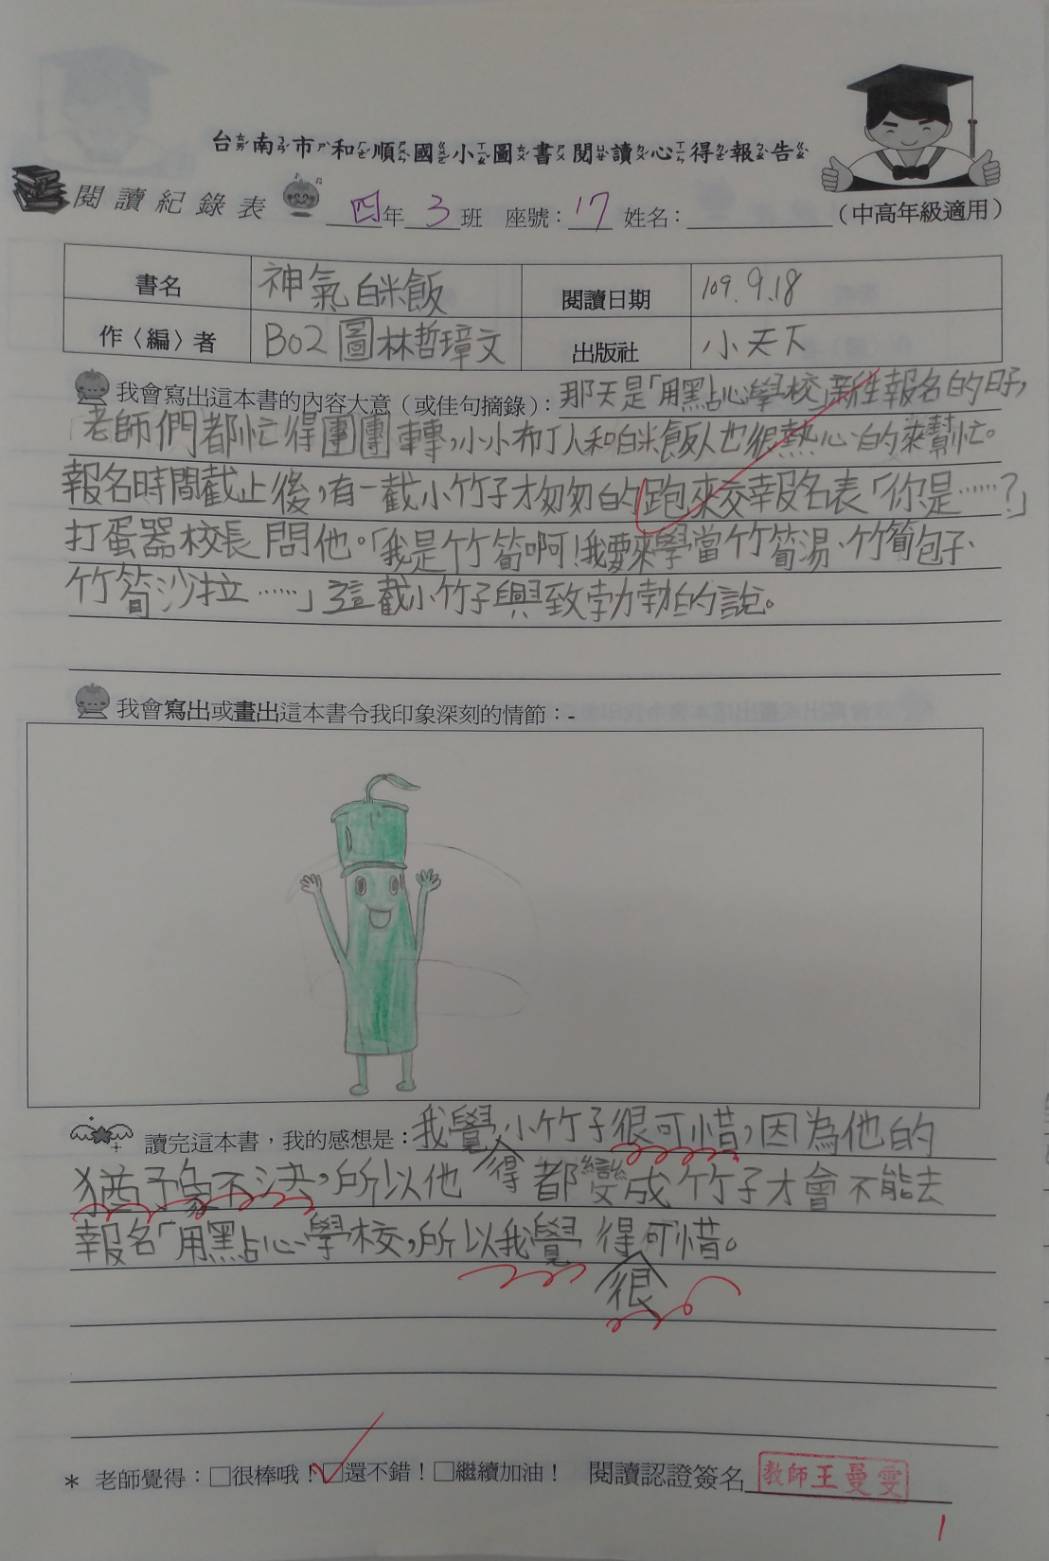 台南市和順國小圖書閱讀心得報告
閱讀紀錄表 四年 3 班 座號：17 姓名： （中高年級適用）
書名 神氣白米飯 閱讀日期 109.9.18
作〈編〉者 BO2圖林哲璋文 出版社 小天下
我會寫出這本書的內容大意（或佳句摘錄）：那天是「用點心學校」新生報名的日子，
老師們都忙得團團轉，小小布丁人和白米飯人也很熱心的來幫忙。
報名時間截止後，有一截小竹子才匆匆的跑來交報名表「你是……？」
打蛋器校長問他。「我是竹筍啊！我要來學當竹筍湯、竹筍包子、
竹筍沙拉……」這截小竹子興致勃勃的說。
我會寫出或畫出這本書令我印象深刻的情節：
讀完這本書，我的感想是：我覺得小竹子很可惜，因為他的
猶予象不決，所以他都變成竹子才會不能去
報名「用點心學校，所以我覺得很可惜。
＊ 老師覺得：□很棒哦！□還不錯！□繼續加油！ 閱讀認證簽名 教師王曼雯
1